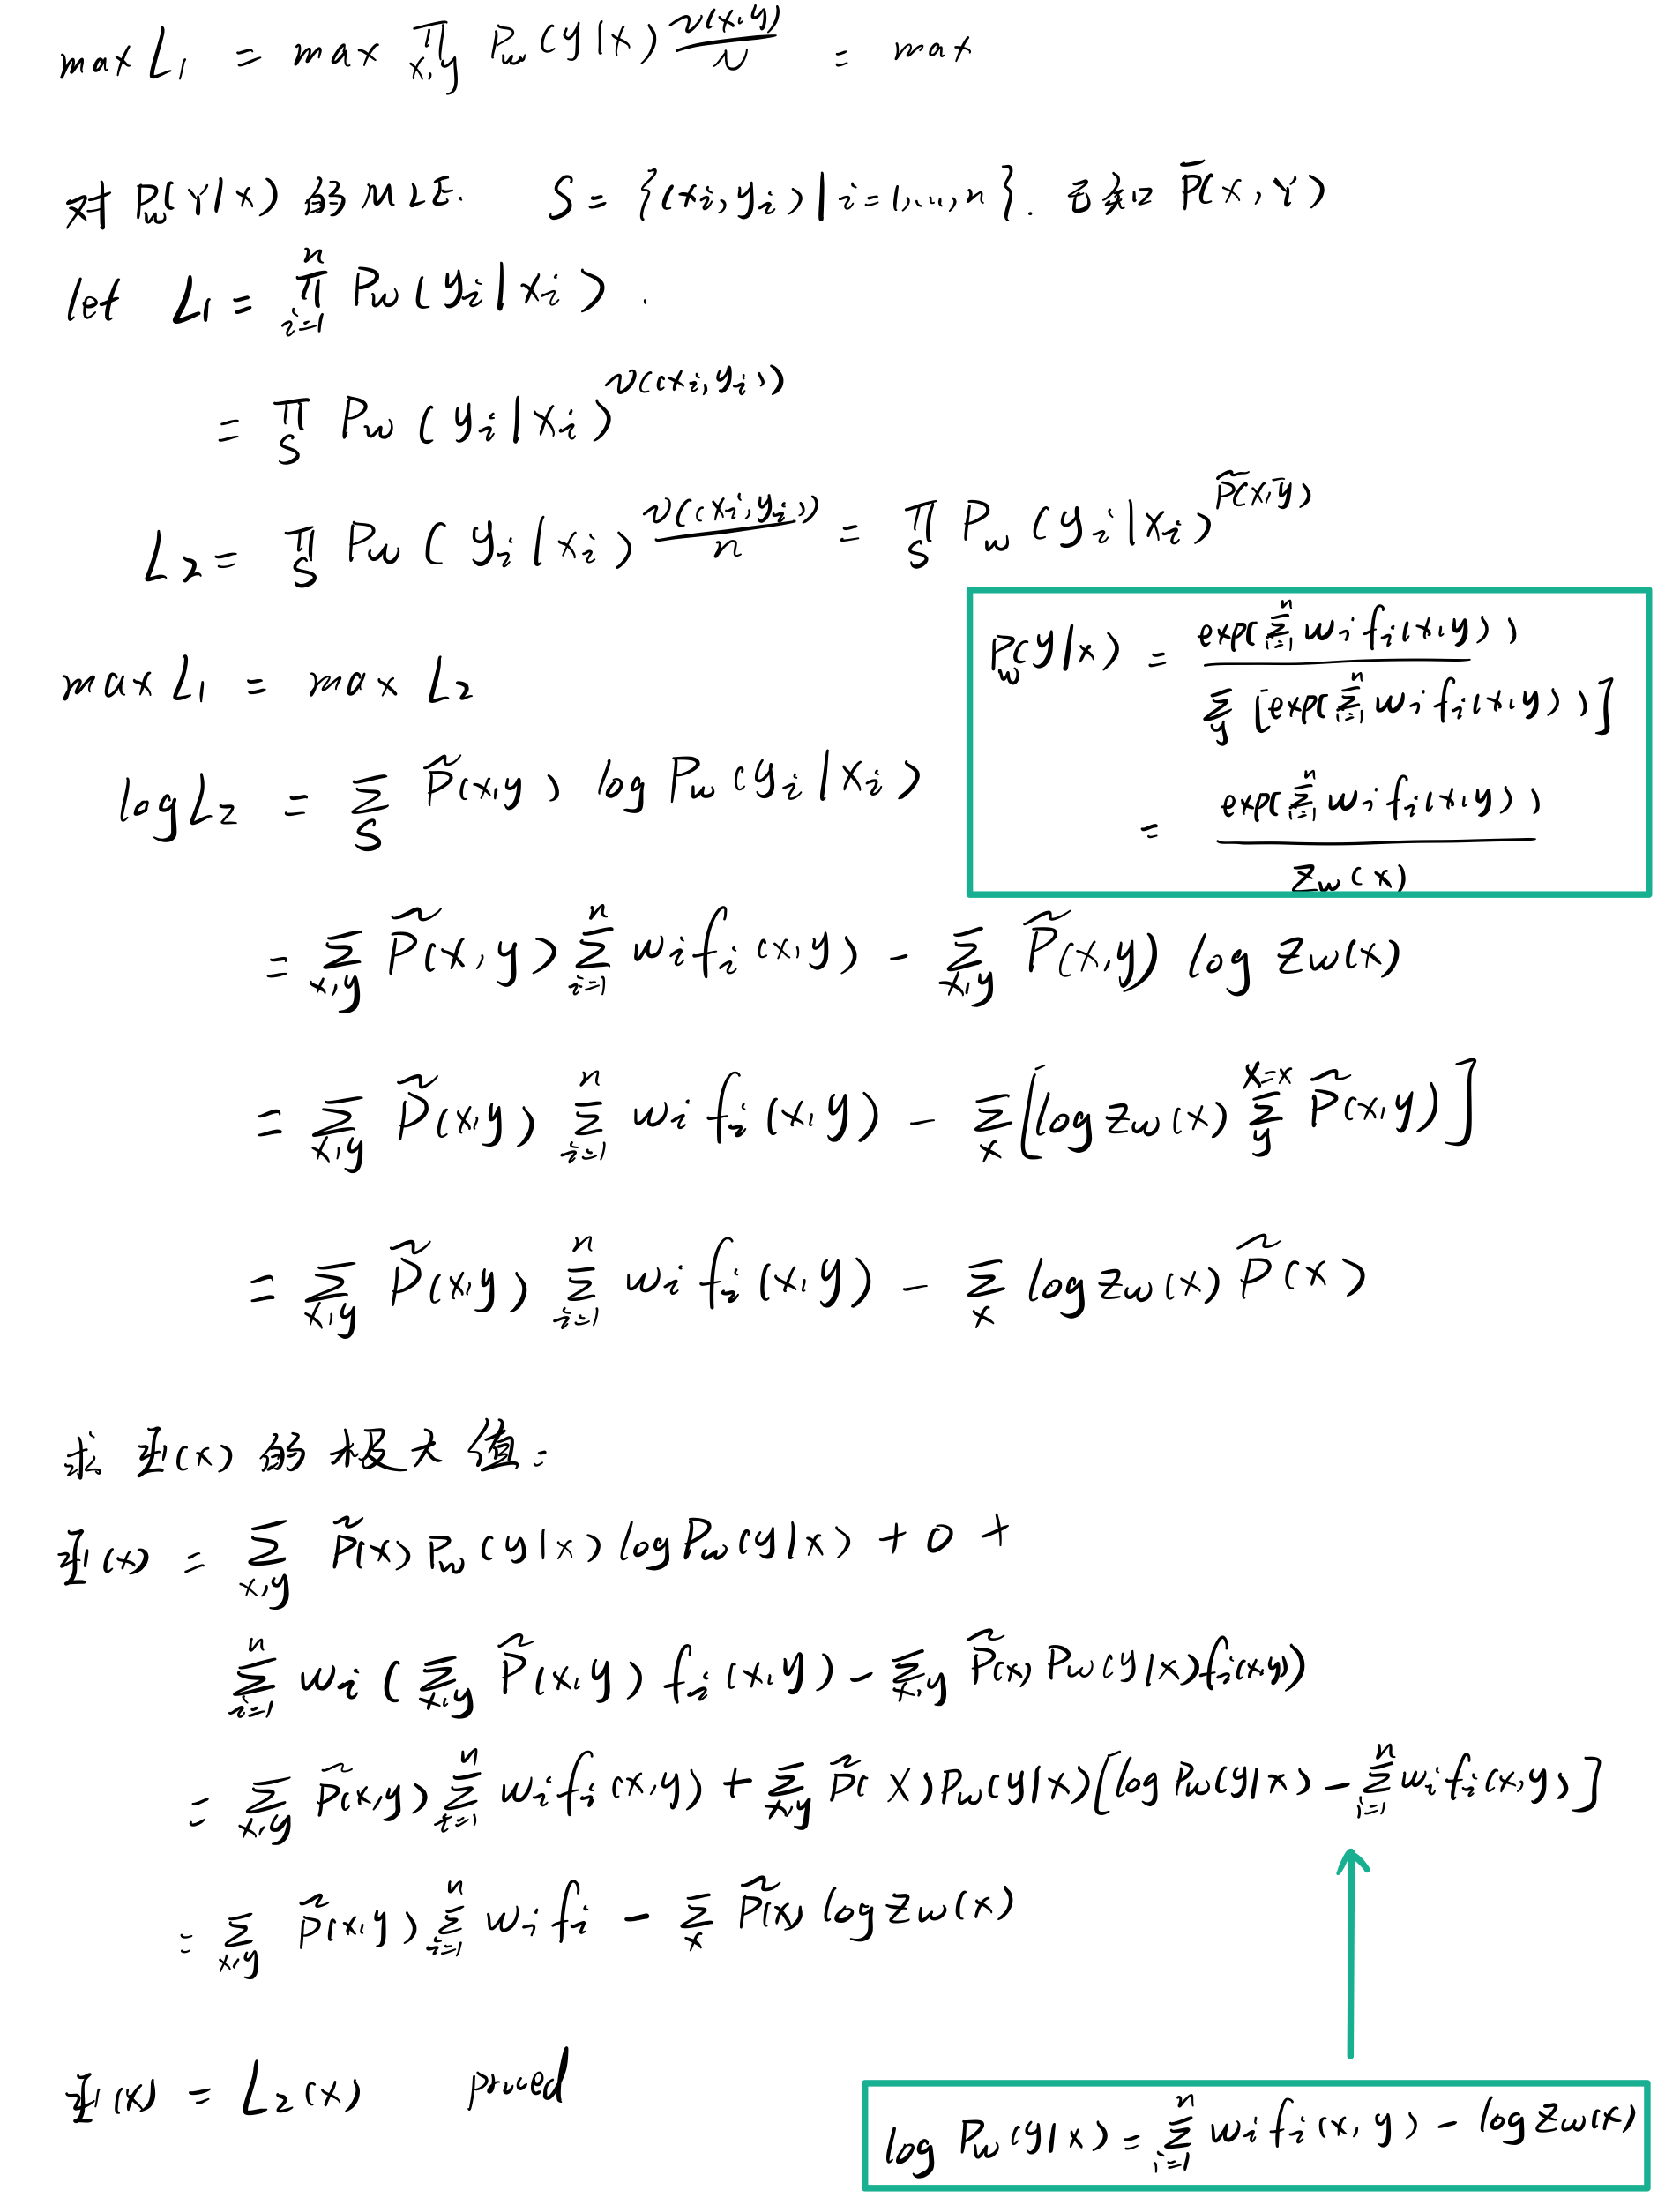 max L₁ = max ∏_{x,y} P_w(y|x)^{v(x,y)/N} = max
对 P_w(Y|X) 的 MLE. S = {(xᵢ,yᵢ)|i=1,...,n}. 已知 P̄(X,Y)
let L₁ = ∏_{i=1}^{n} P_w(yᵢ|xᵢ).
= ∏_S P_w(yᵢ|xᵢ)^{v((xᵢ,yᵢ))}
L₂ = ∏_S P_w(yᵢ|xᵢ)^{v((xᵢ,yᵢ))/n} = ∏_S P_w(yᵢ|xᵢ)^{P̃(x,y)}
max L₁ = max L₂
P_w(y|x) = exp(∑_{i=1}^{n} wᵢfᵢ(x,y)) / ∑_y [exp(∑_{i=1}^{n} wᵢfᵢ(x,y))]
= exp(∑_{i=1}^{n} wᵢfᵢ(x,y)) / Z_w(x)
log L₂ = ∑_S P̃(x,y) log P_w(yᵢ|xᵢ)
= ∑_{x,y} P̃(x,y) ∑_{i=1}^{n} wᵢfᵢ(x,y) - ∑_{x,y} P̃(x,y) log Z_w(x)
= ∑_{x,y} P̃(x,y) ∑_{i=1}^{n} wᵢfᵢ(x,y) - ∑_x [log Z_w(x) ∑_y^{X=x} P̃(x,y)]
= ∑_{x,y} P̃(x,y) ∑_{i=1}^{n} wᵢfᵢ(x,y) - ∑_x log Z_w(x) P̃(x)
求 Ψ(x) 的极大值:
Ψ(x) = ∑_{x,y} P̃(x) P_w(y|x) log P_w(y|x) + 0 +
∑_{i=1}^{n} wᵢ(∑_{x,y} P̃(x,y) fᵢ(x,y) - ∑_{x,y} P̃(x) P_w(y|x) fᵢ(x,y))
= ∑_{x,y} P̃(x,y) ∑_{i=1}^{n} wᵢfᵢ(x,y) + ∑_{x,y} P̃(X) P_w(y|x) [log P_w(y|x) - ∑_{i=1}^{n} wᵢfᵢ(x,y)]
= ∑_{x,y} P̃(x,y) ∑_{i=1}^{n} wᵢfᵢ - ∑_x P̃(x) log Z_w(x)
Ψ(x) = L₂(x) proved
log P_w(y|x) = ∑_{i=1}^{n} wᵢfᵢ(x,y) - log Z_w(x)